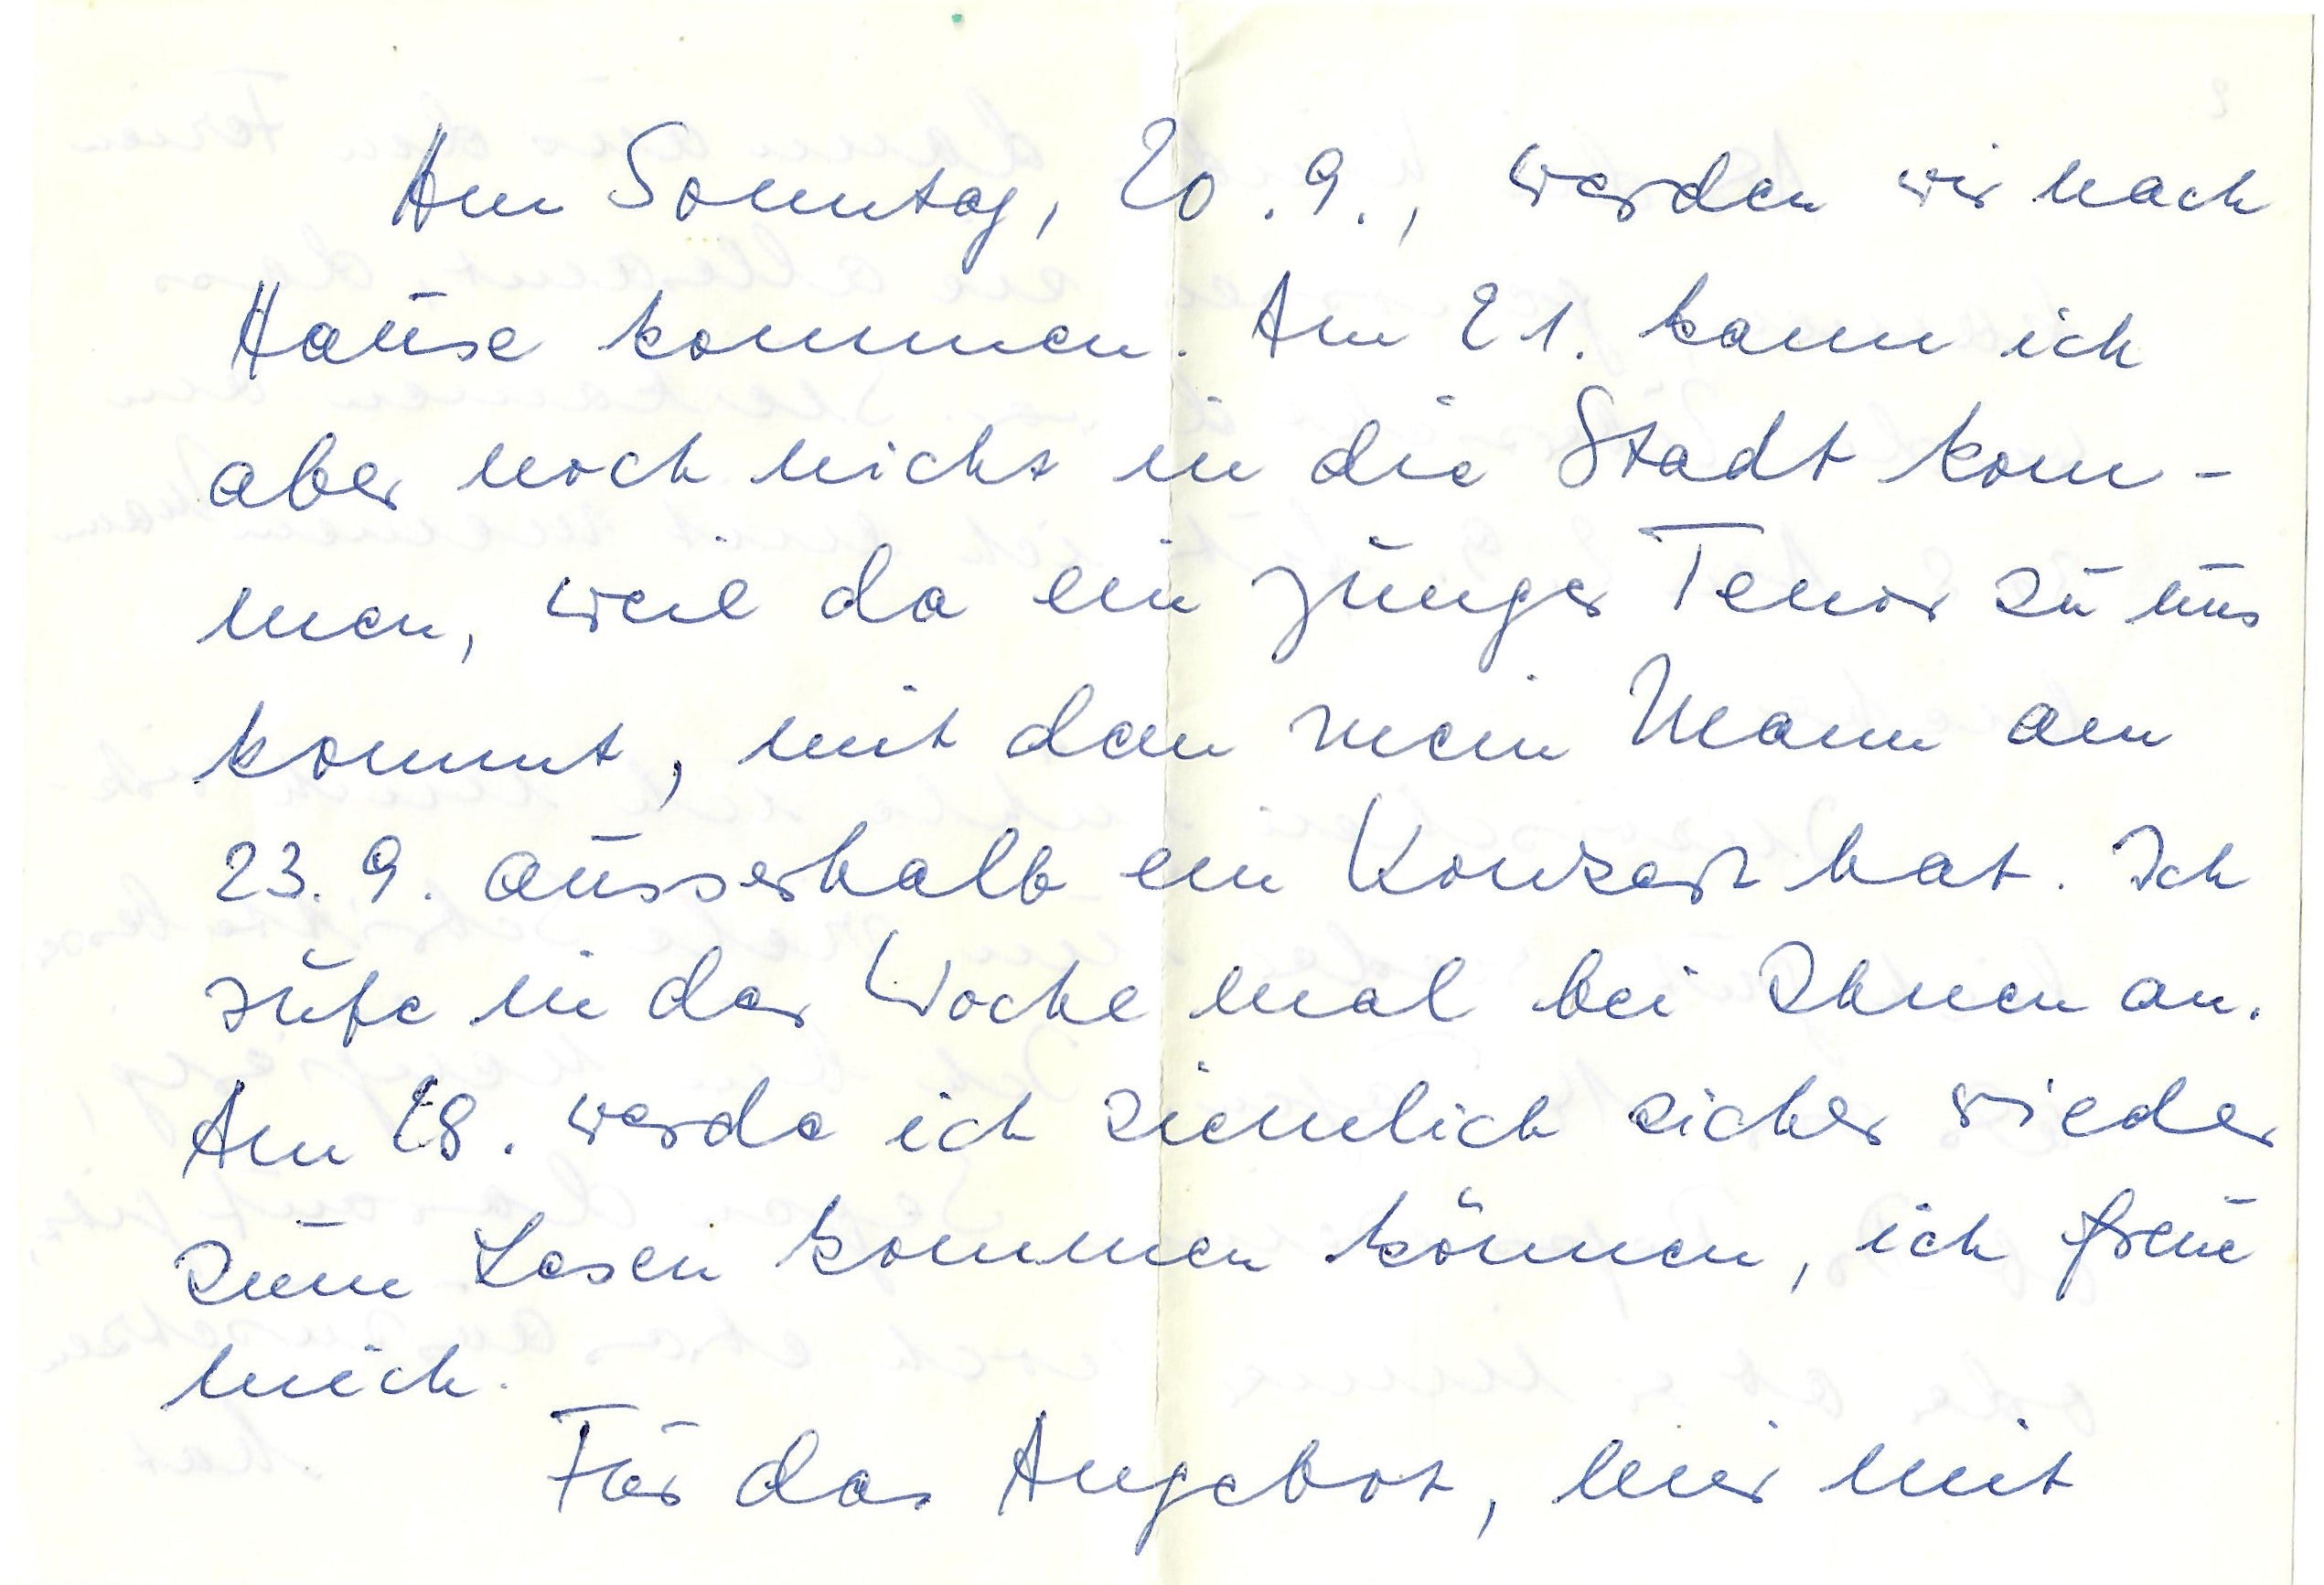 Am Sonntag, 20.9., werden wir nach
Hause kommen. Am 21. kann ich
aber noch nicht in die Stadt kom-
men, weil da ein junger Tenor zu uns
kommt, mit dem mein Mann am
23.9. ausserhalb ein Konzert hat. Ich
rufe in der Woche mal bei Ihnen an.
Am 28. werde ich ziemlich sicher wieder
zum Lesen kommen können, ich freue
mich.
Für das Angebot, mir mit